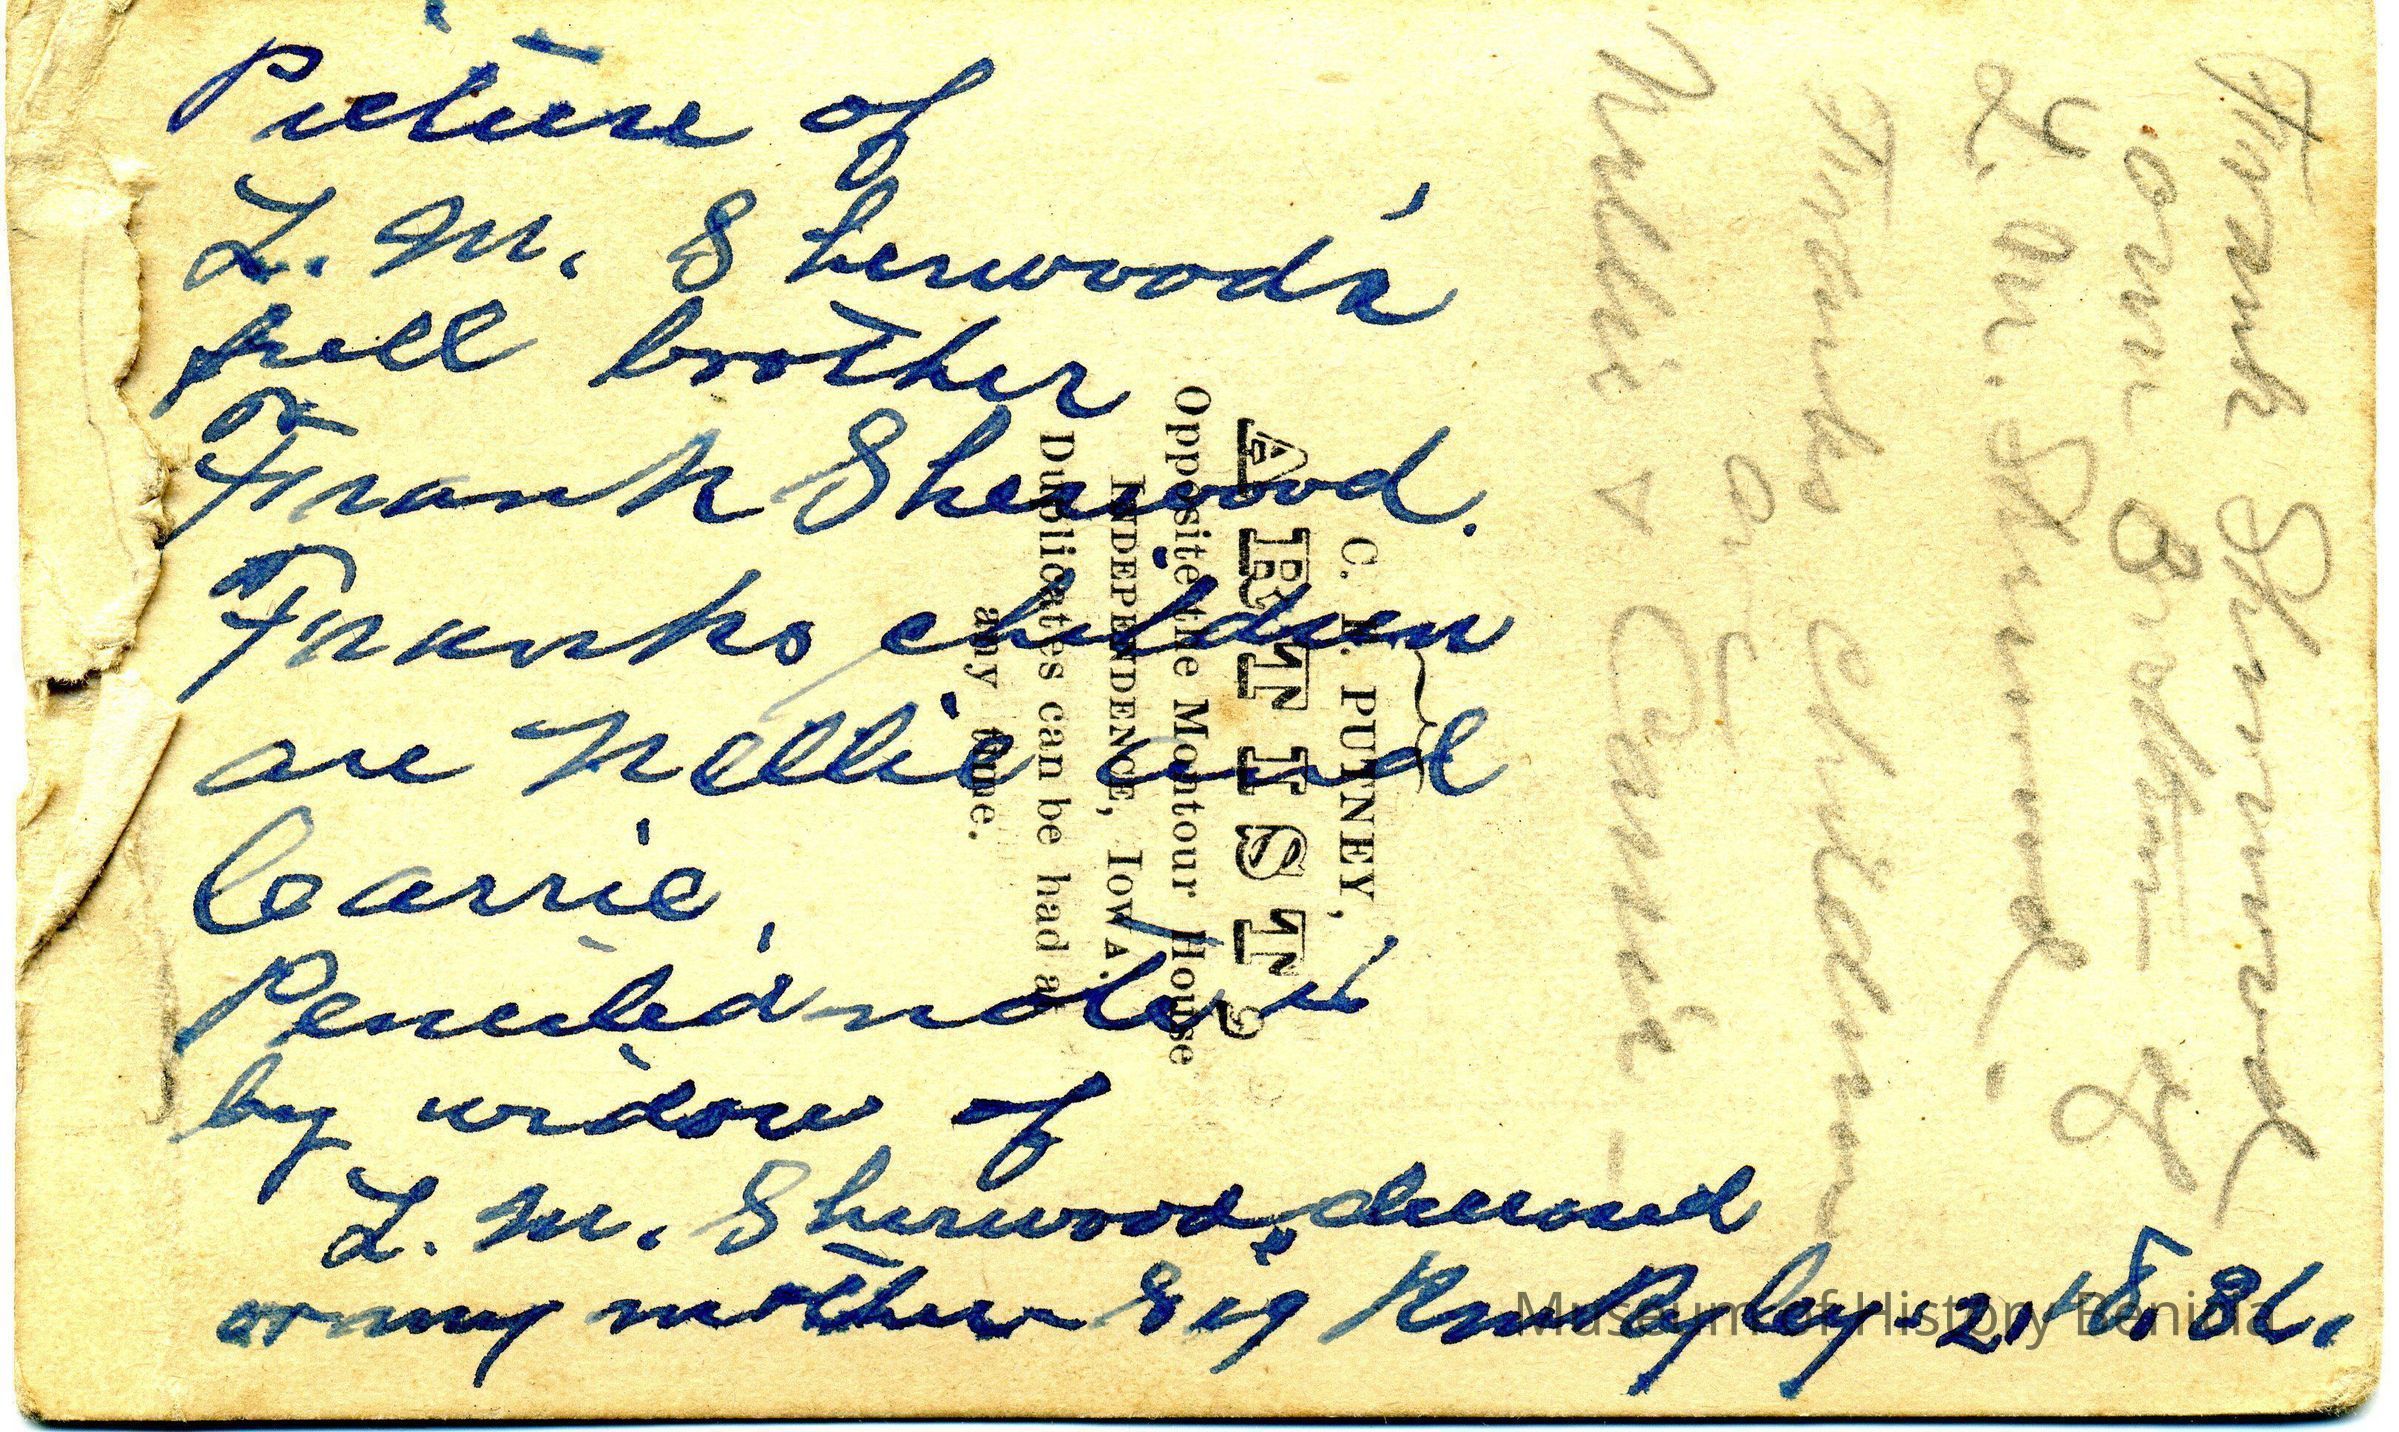 Picture of
L. M. Sherwood's
full brother
Frank Sherwood.
Franks children
are Nellie and
Carrie,
Penciled note is
by widow of
L. M. Sherwood, deceased
or my mother Sig
Frank Sherwood
own Brother to
L. M. Sherwood.
Franks Children
are
Nellie & Carrie –
C. PUTNEY,
ARTIST,
Opposite the Montour House
INDEPENDENCE, IOWA.
Duplicates can be had at
any time.
Museum of History Benicia